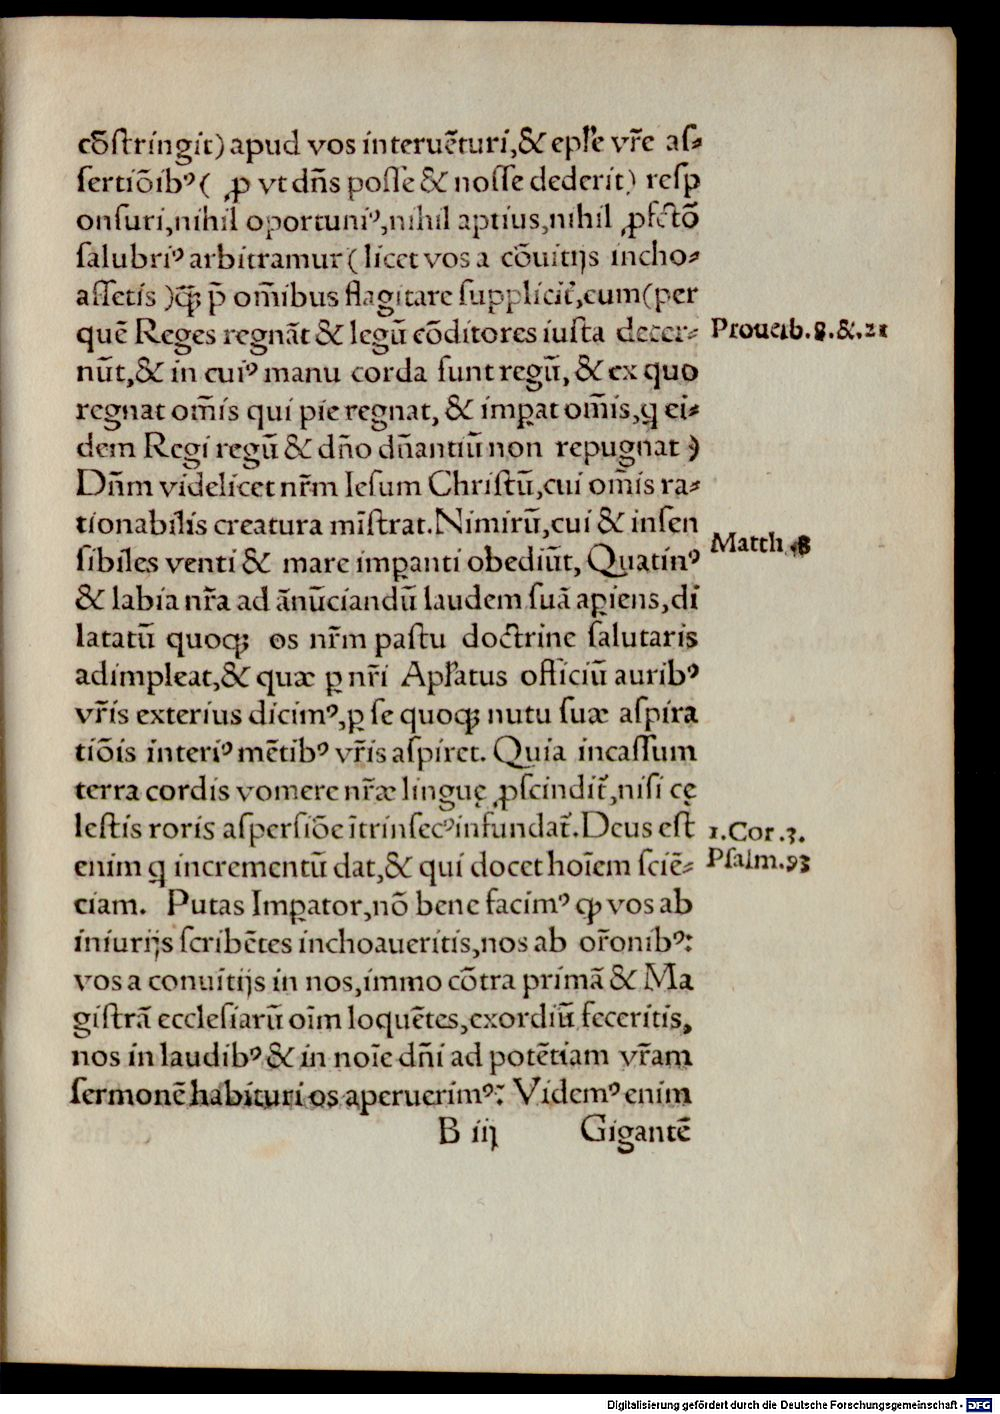 cōſtringit) apud vos interuēturi,& epl̄e vr̄e aſ-
ſertiōibꝰ( ꝓ vt dn̄s poſſe & noſſe dederit) reſp
onſuri,nihil oportuniꝰ,nihil aptius,nihil ꝓfctō
ſalubriꝰ arbitramur ( licet vos a cōuitijs incho-
aſſetis )q̄ꝫ p̄ om̄ibus flagitare ſuppliciť,eum(per
quē Reges regnāt & legū cōditores iuſta decer-
nūt,& in cuiꝰ manu corda ſunt regū, & ex quo
regnat om̄is qui pie regnat, & imꝑat om̄is,ꝗ ei-
dem Regi regū & dn̄o dn̄antiū non repugnat )
Dn̄m videlicet nr̄m Ieſum Chriſtū,cui om̄is ra-
tionabilis creatura mīſtrat.Nimirū,cui & inſen
ſibiles venti & mare imꝑanti obediūt, Quatinꝰ
& labia nr̄a ad ānūciandū laudem ſuā aꝑiens,di
latatū quoqꝫ os nr̄m paſtu doctrine ſalutaris
adimpleat,& quæ ꝑ nr̄i Apl̄atus officiū auribꝰ
vr̄is exterius dicimꝰ,ꝑ ſe quoqꝫ nutu ſuæ aſpira
tiōis interiꝰ mētibꝰ vr̄is aſpiret. Quia incaſſum
terra cordis vomere nr̄æ linguę ꝓſcindiť,niſi cę
leſtis roris aſperſiōe ītrinſecꝰ infundať.Deus eſt
enim ꝗ incrementū dat,& qui docet hoīem ſciē-
ciam. Putas Imꝑator,nō bene facimꝰ ꝙ vos ab
iniurijs ſcribētes inchoaueritis,nos ab or̄onibꝰ:
vos a conuitijs in nos,immo cōtra primā & Ma
giſtrā eccleſiarū oīm loquētes,exordiū feceritis,
nos in laudibꝰ & in noīe dn̄i ad potētiam vr̄am
ſermonē habituri os aperuerimꝰ: Videmꝰ enim
B iij Gigantē
Prouerb.8.&.21
Matth.8
1.Cor.3.
Pſalm.93
Digitalisierung gefördert durch die Deutsche Forschungsgemeinschaft - DFG